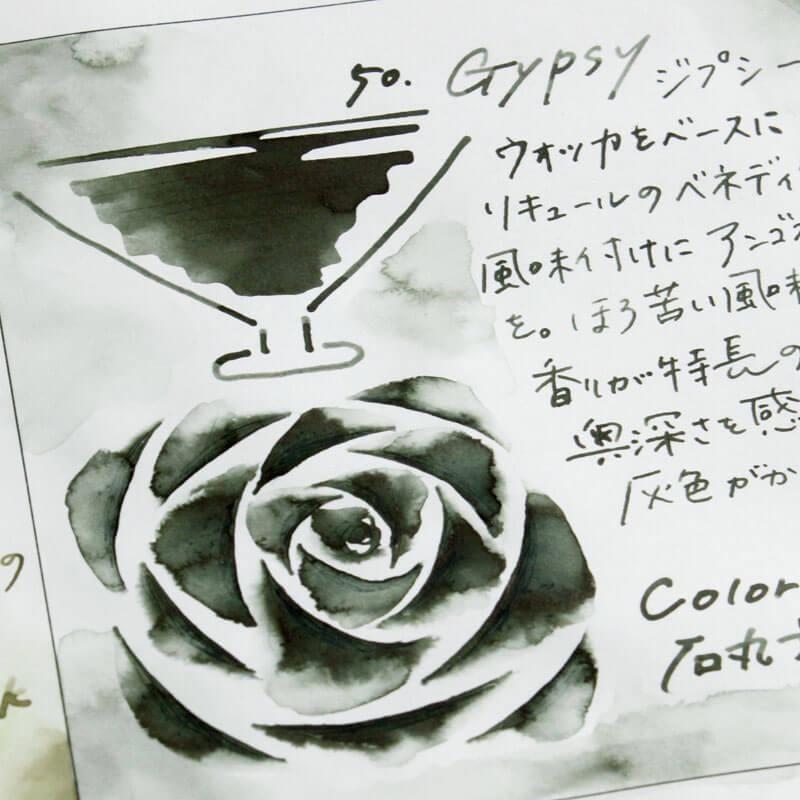 50. Gypsy ジプシー
ウォッカをベースに
リキュールのベネディ
風味付けにアンゴス
を。ほろ苦い風味
香りが特長の
奥深さを感
灰色がか
Color
石丸
の